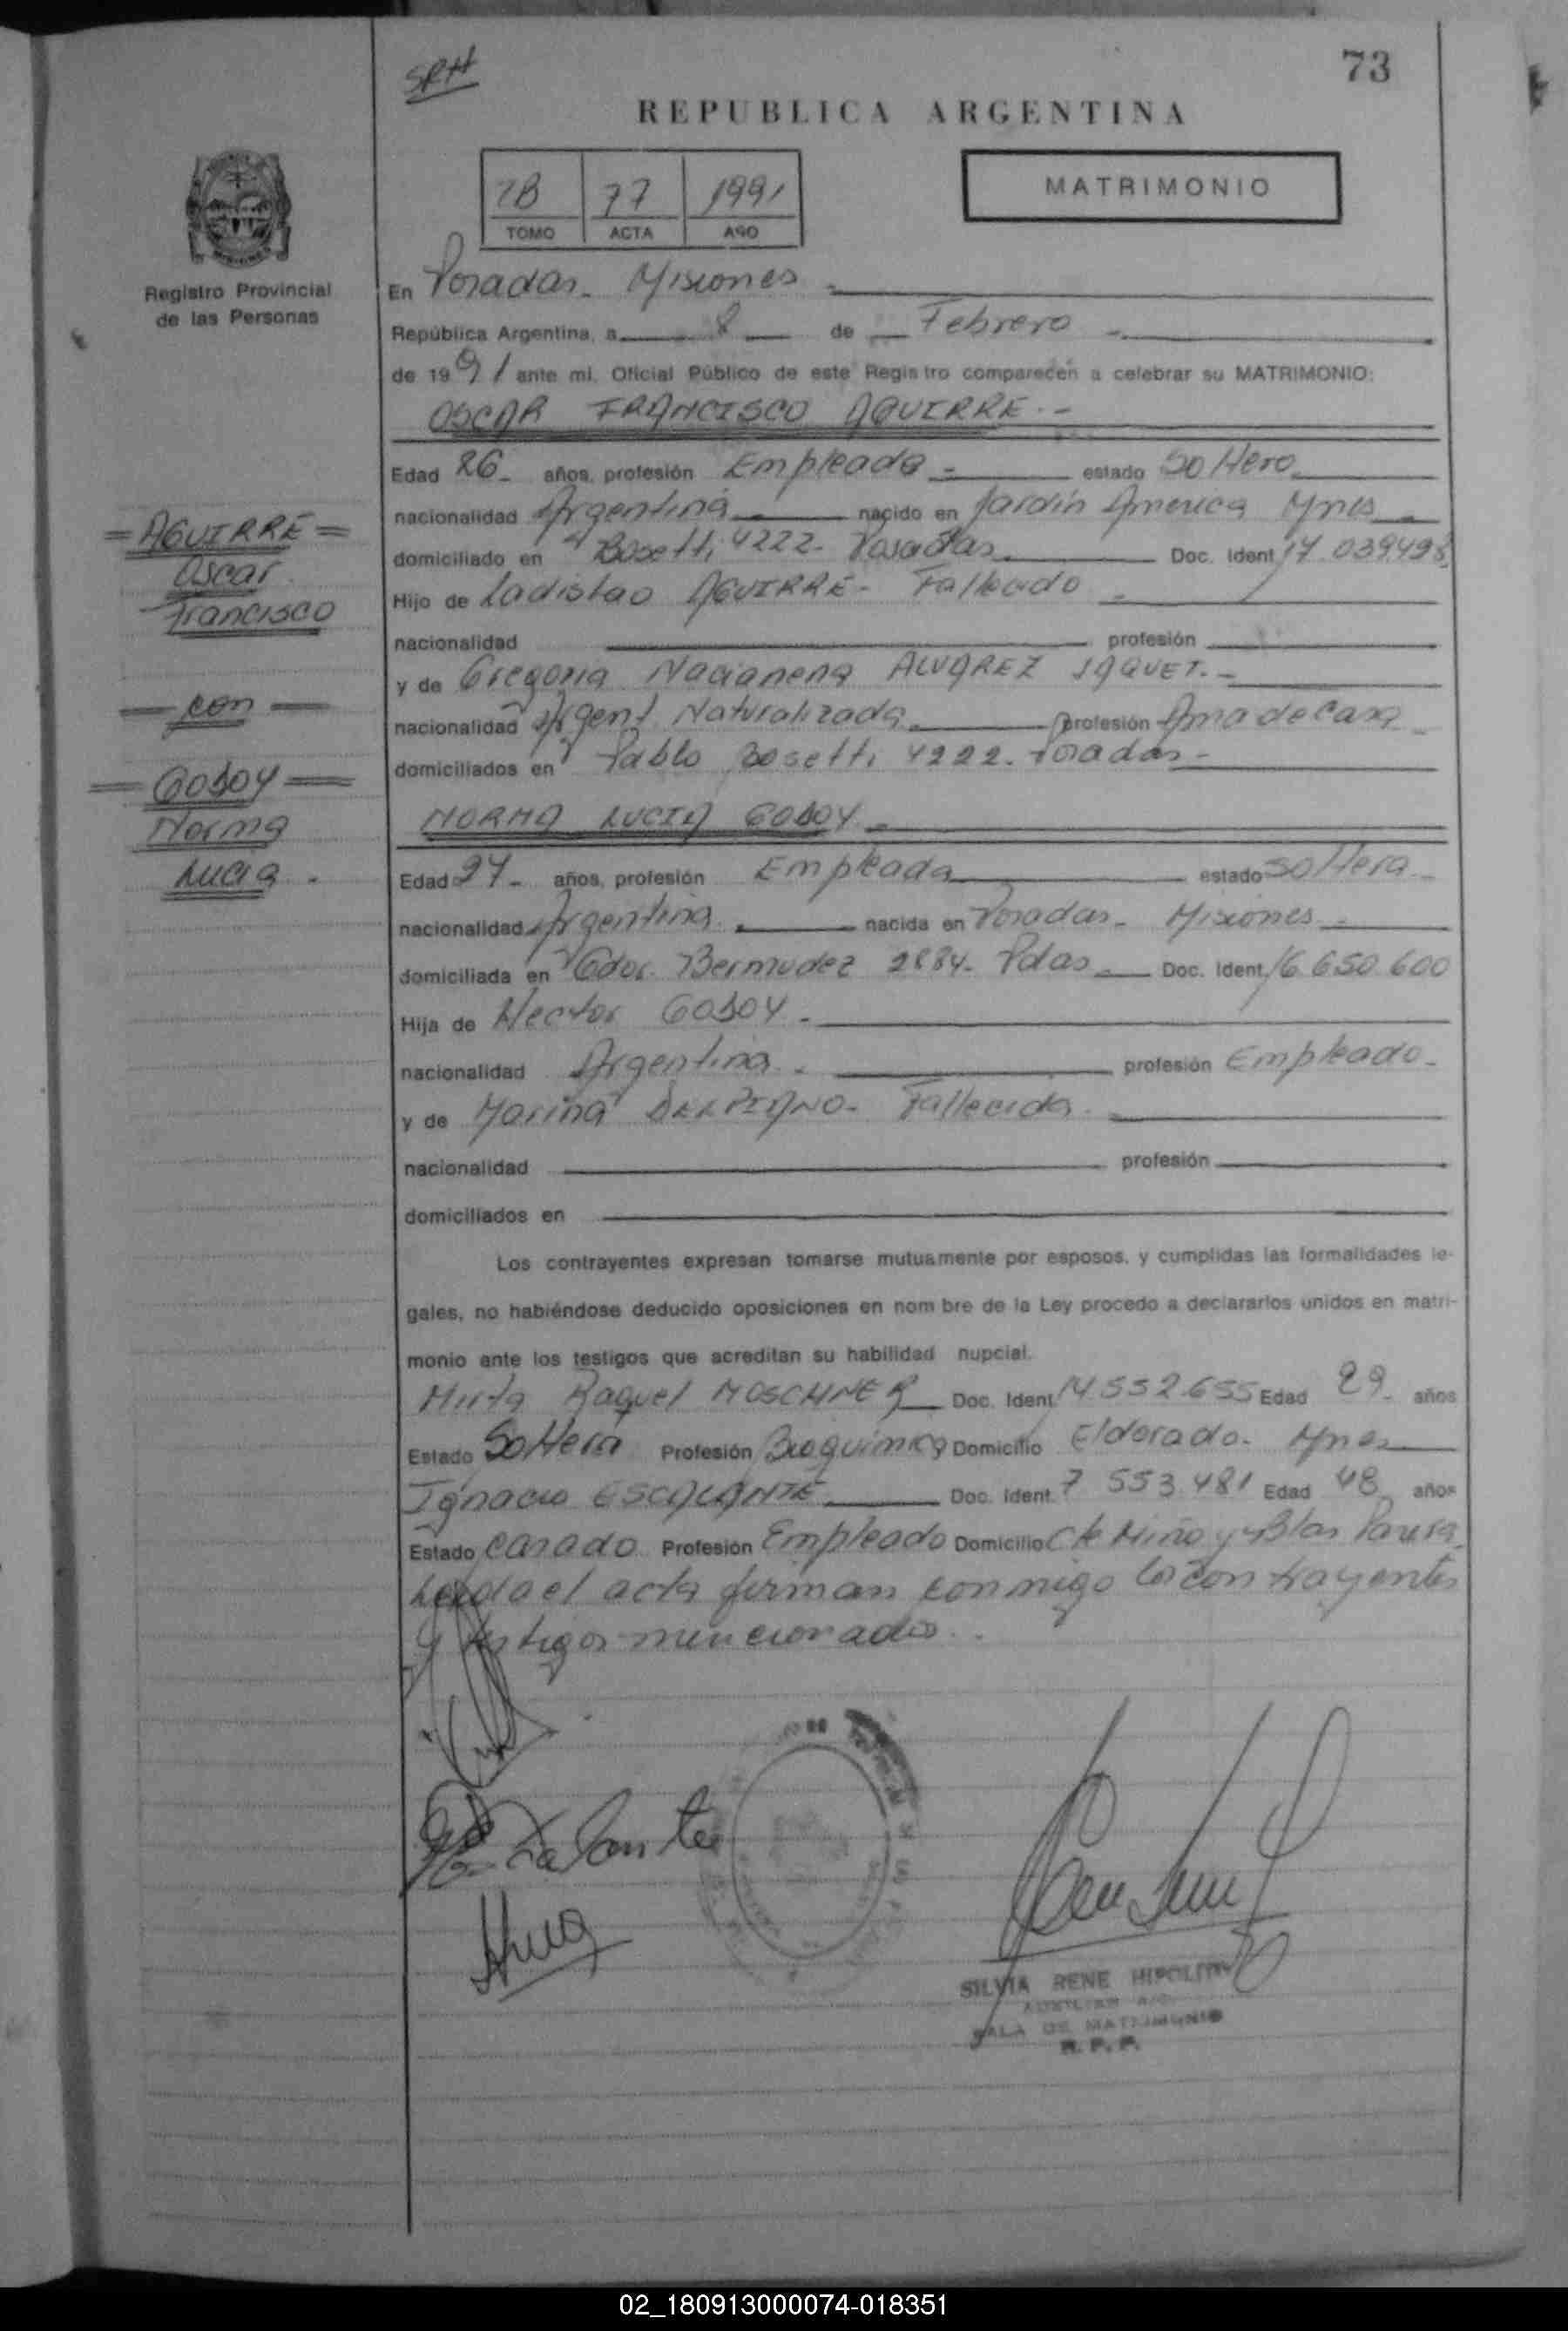 73
SRH
REPUBLICA ARGENTINA
1B 77 1991
TOMO ACTA AÑO
MATRIMONIO
Registro Provincial
de las Personas
En Posadas - Misiones
República Argentina, a 8 de Febrero
de 1991 ante mi, Oficial Público de este Registro comparecen a celebrar su MATRIMONIO:
OSCAR FRANCISCO AGUIRRE.-
Edad 26 años, profesión Empleado - estado Soltero
nacionalidad Argentina nacido en Jardín América Mnes
domiciliado en Bosetti 4222- Posadas Doc. Ident. 17.039498
Hijo de Ladislao AGUIRRE- Fallecido
nacionalidad profesión
y de Gregoria Nacianena ALVAREZ JAQUET.-
nacionalidad Argent. Naturalizada profesión Ama de Casa
domiciliados en Pablo Bosetti 4222. Posadas-
= AGUIRRE =
Oscar
Francisco
- con -
= GODOY =
Norma
Lucia.
NORMA LUCIA GODOY -
Edad 27- años, profesión Empleada estado Soltera
nacionalidad Argentina nacida en Posadas- Misiones
domiciliada en Gdor. Bermudez 2884- Pdas Doc. Ident. 16.650.600
Hija de Hector GODOY.
nacionalidad Argentina. profesión Empleado-
y de Marina DELPIANO- Fallecida
nacionalidad profesión
domiciliados en
Los contrayentes expresan tomarse mutuamente por esposos, y cumplidas las formalidades le-
gales, no habiéndose deducido oposiciones en nom bre de la Ley procedo a declararlos unidos en matri-
monio ante los testigos que acreditan su habilidad nupcial.
Mirta Raquel MOSCHNER Doc. Ident. 14.552.655 Edad 29 años
Estado Soltera Profesión Bioquímica Domicilio Eldorado- Mnes
Ignacio ESCALANTE Doc. Ident. 7 553.481 Edad 48 años
Estado Casado Profesión Empleado Domicilio Cte Miño y Blas Parera
Leída el acta firman conmigo los contrayentes
y testigos mencionados.
SILVIA RENE HIPOLITO
SALA DE MATRIMONIO
R. P. P.
02_180913000074-018351